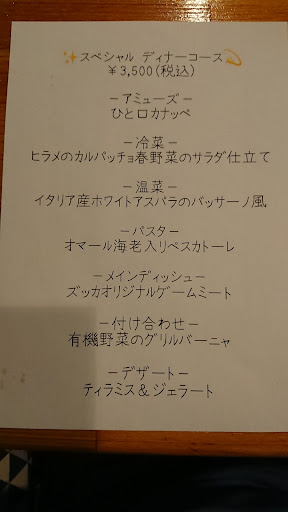 ✨スペシャル ディナーコース💫
￥3,500(税込)
−アミューズ−
ひと口カナッペ
−冷菜−
ヒラメのカルパッチョ春野菜のサラダ仕立て
−温菜−
イタリア産ホワイトアスパラのバッサーノ風
−パスター
オマール海老入りペスカトーレ
−メインディッシュ−
ズッカオリジナルゲームミート
−付け合わせ−
有機野菜のグリルバーニャ
−デザート−
ティラミス&ジェラート